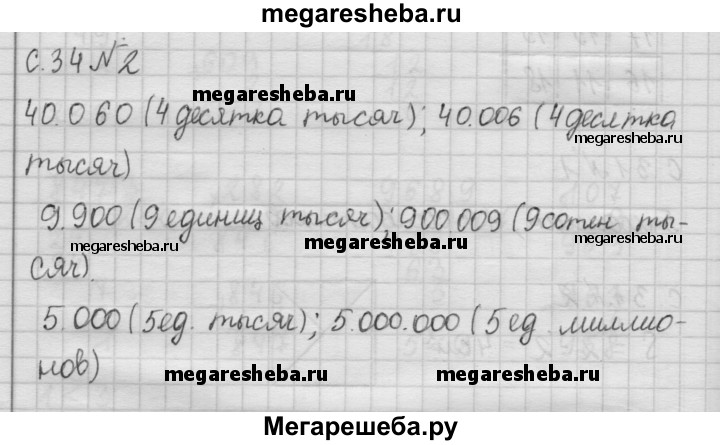 megaresheba.ru
С. 34 № 2
megaresheba.ru
40.060 (4 десятка тысяч); 40.006 (4 десятка
megaresheba.ru
тысяч)
9.900 (9 единиц тысяч); 900.009 (9 сотен ты-
megaresheba.ru megaresheba.ru megaresheba.ru
сяч).
5.000 (5 ед. тысяч); 5.000.000 (5 ед. миллио-
нов)
megaresheba.ru megaresheba.ru
Мегарешеба.ру